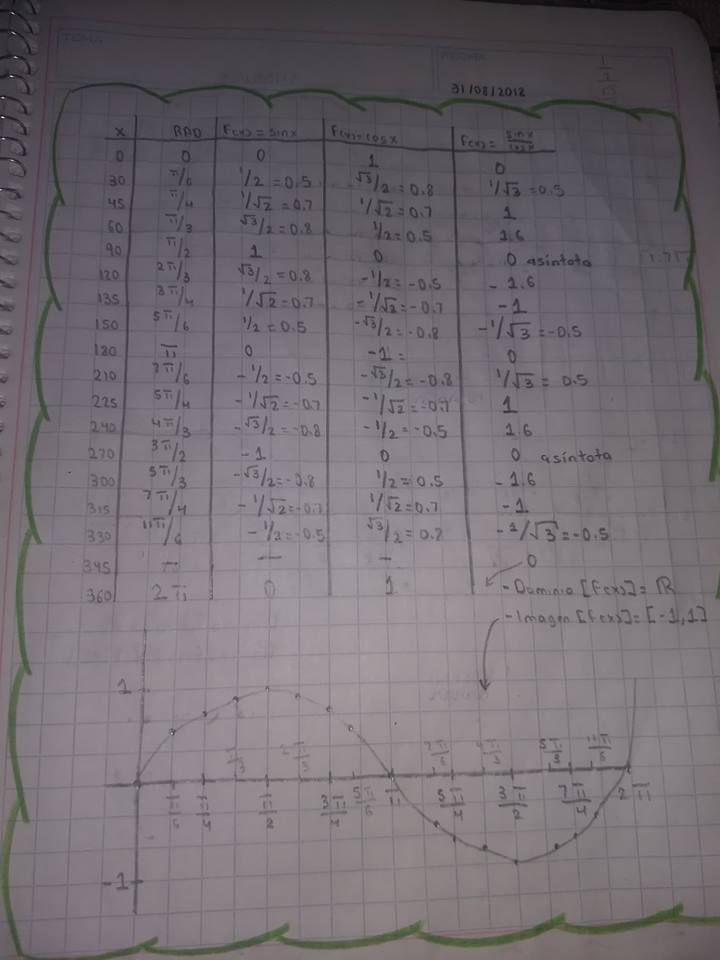 TEMA
FECHA
31/08/2018
x RAD F(x)= sinx F(x)=cosx F(x)= sinx/cosx
0 0 0 1 0
30 π/6 1/2 = 0.5 √3/2 = 0.8 1/√3 = 0.5
45 π/4 1/√2 = 0.7 1/√2 = 0.7 1
60 π/3 √3/2 = 0.8 1/2 = 0.5 1.6
90 π/2 1 0 0 asíntota
120 2π/3 √3/2 = 0.8 -1/2 = -0.5 -1.6
135 3π/4 1/√2 = 0.7 -1/√2 = -0.7 -1
150 5π/6 1/2 = 0.5 -√3/2 = -0.8 -1/√3 = -0.5
180 π 0 -1 = 0
210 7π/6 -1/2 = -0.5 -√3/2 = -0.8 1/√3 = 0.5
225 5π/4 -1/√2 = -0.7 -1/√2 = -0.7 1
240 4π/3 -√3/2 = -0.8 -1/2 = -0.5 1.6
270 3π/2 -1 0 0 asíntota
300 5π/3 -√3/2 = -0.8 1/2 = 0.5 -1.6
315 7π/4 -1/√2 = -0.7 1/√2 = 0.7 -1
330 11π/6 -1/2 = -0.5 √3/2 = 0.8 -1/√3 = -0.5
345 — — — 0
360 2π 0 1
- Dominio [F(x)] = ℝ
- Imagen [F(x)] = [-1,1]
1
π/3 2π/3 7π/6 4π/3 5π/3 11π/6
π/6 π/4 π/2 3π/4 5π/6 π 5π/4 3π/2 7π/4 2π
-1